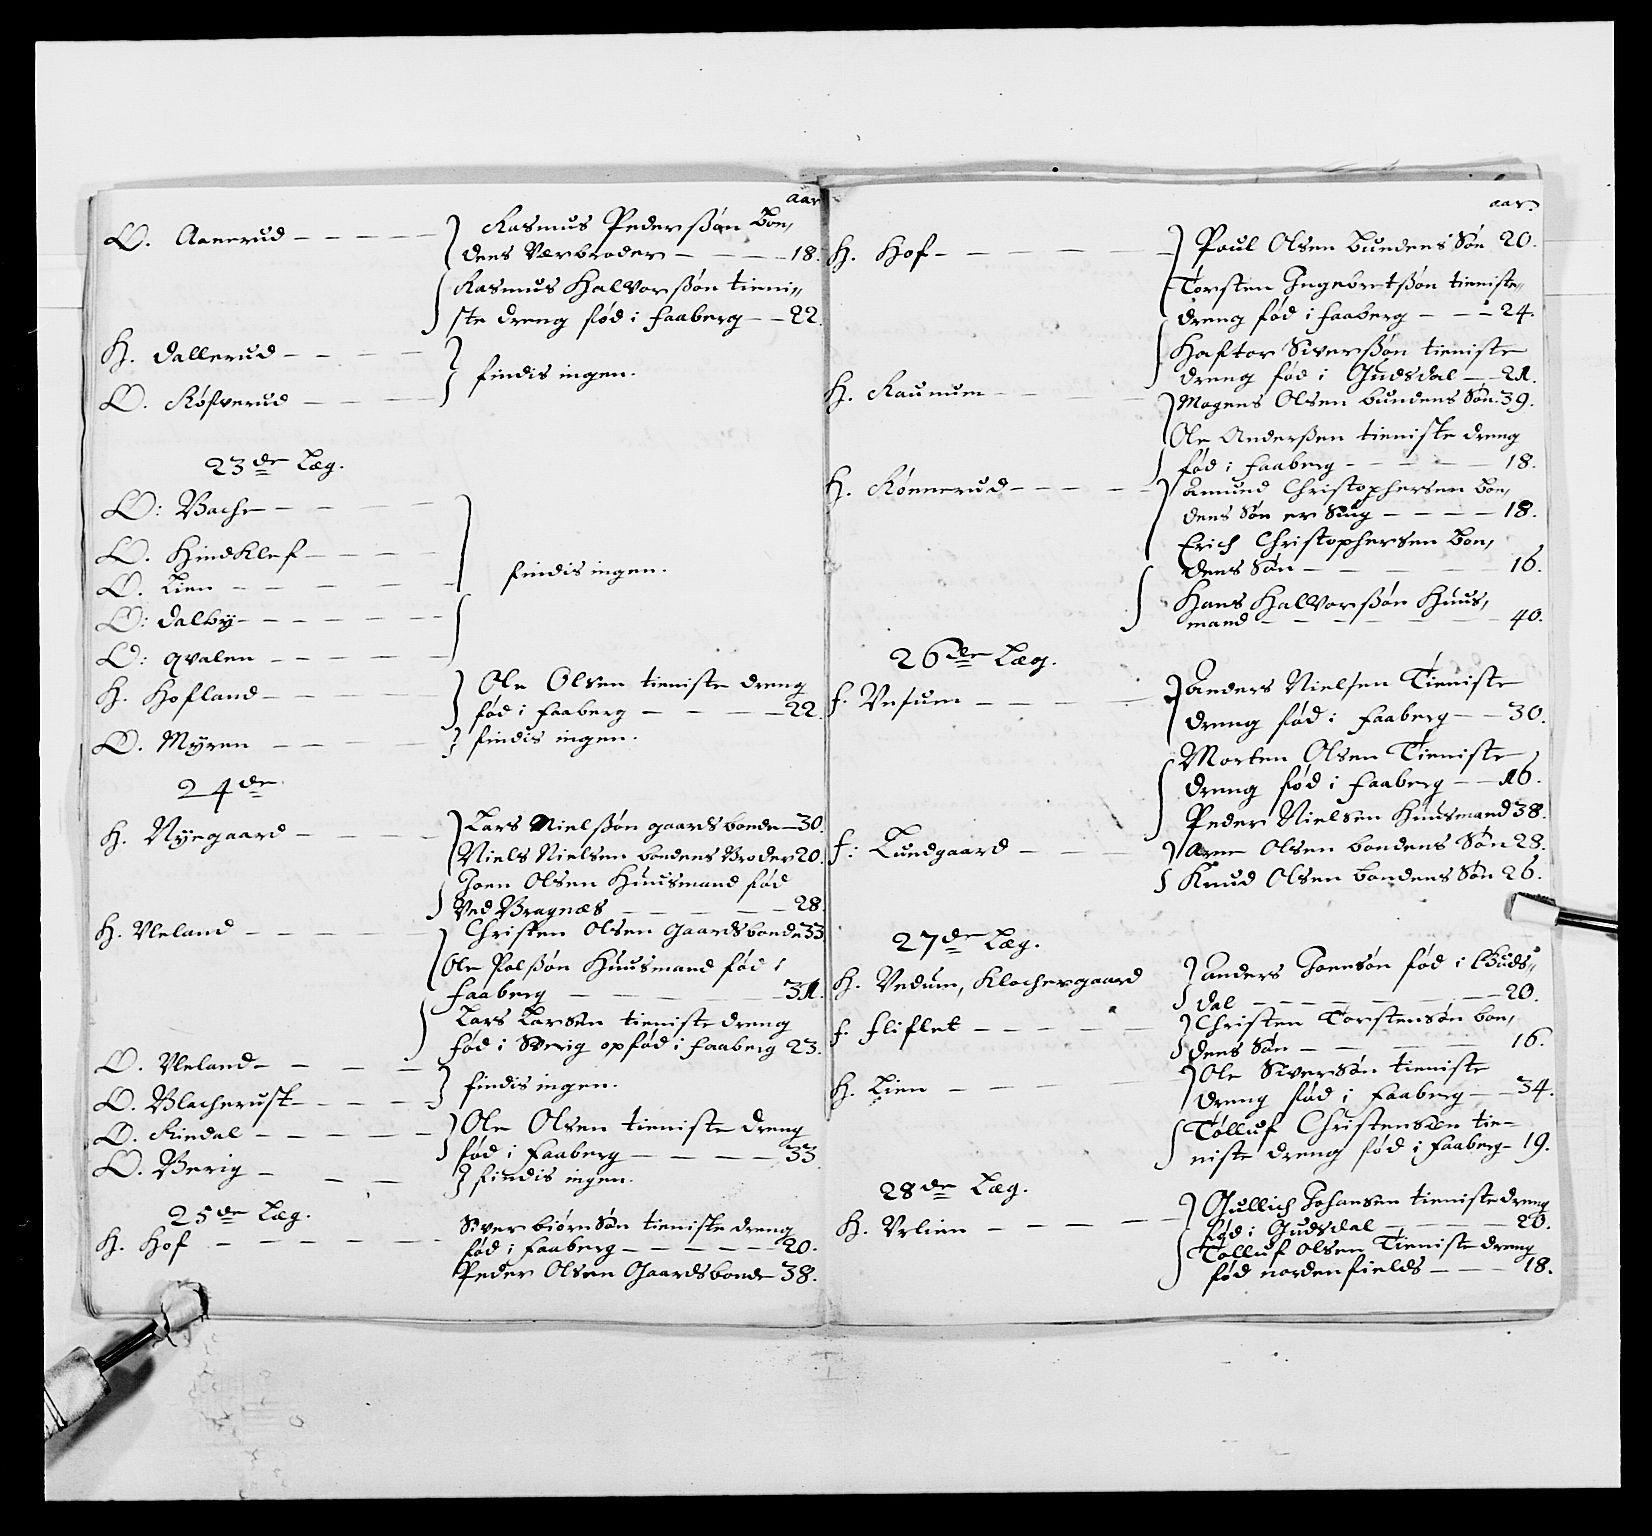 aar
Ø. Aanerud — — — — — Rasmus Pederßøn Bon,
dens Værbroder — — — — 18.
Rasmus Halvorßøn tieni„
ste dreng fød i faaberg — — 22.
H. Dallerud — — — —
findis ingen.
Ø. Røfverud — — — —
23de Læg.
Ø: Bache — — — —
Ø. Hindklef — — — —
Ø. Lien — — — —
findis ingen.
Ø: Dalby — — — — — —
Ø: qvalen — — — — —
H. Hofland — — — — Ole Olsen tieniste dreng
fød i faaberg — — — — — 22.
Ø. Myren — — — — findis ingen.
24de
H. Nyegaard — — — — Lars Nielßøn gaardsbonde — 30.
Niels Nielsen bondens Broder 20.
Joen Olsen Huusmand fød
Ved Bragnæs — — — — — 28.
H. Uleland — — — — — Christen Olsen Gaardsbonde 33
Ole Polßøn Huusmand fød i
faaberg — — — — — — 31.
Lars Larsen tieniste dreng
fød i Swerig opfød i faaberg 23.
Ø. Uleland — — — —
findis ingen.
Ø. Blacherust — — — —
Ø. Rindal — — — — — Ole Olsen tieniste dreng
fød i Faaberg — — — — — 33
Ø. Berig — — — findis ingen.
25de Læg.
H. Hof — — — — — — Siver biørnsøn tieniste dreng
fød i faaberg — — — — — — 20.
Peder Olsen Gaardsbonde 38.
aar.
H. Hof — — — — — Poul Olsen bundens Søn 20.
Torsten Ingebretßøn tieniste„
dreng fød i faaberg — — — 24.
Haftor Siverßøn tieniste
dreng fød i Gudsdal — — 21.
H. Raunum — — — — Mogens Olsen bundens Søn. 39.
Ole Anderßen tieniste dreng
fød i faaberg — — — — — 18.
H. Rønnerud — — — — — Amund Christophersen Bon,
dens Søn er Siug — — — — 18.
Erich Christophersen Bon,
dens Søn — — — — — — 16.
Hans Halvorßøn Huus,
mand — — — — — — — 40.
26de Læg.
f. Vesum — — — — — Anders Nielsen Tieniste
dreng fød i faaberg — — 30.
Morten Olsen Tieniste
dreng fød i faaberg — — 16.
Peder Nielsen Huusmand 38.
f: Lundgaard — — — Arne Olsen bondens Søn 28.
Knud Olsen bondens Søn 26.
27de Læg.
H. Vedum, Klochergaard Anders Joensøn fød i Guds„
dal — — — — — — — — — 20.
f. Fliflet — — — — — — Christen Torstensøn bon,
dens Søn — — — — — — 16.
H. Lien — — — — Ole Siversøn tieniste
dreng fød i Faaberg — — 34.
Tølluf Christensen tie-
niste dreng fød i Faaberg — 19.
28de Læg.
H. Urlien — — — — — — Gullich Johansen tieniste dreng
fød i Gudsdal — — — — — 20.
Tølluf Olsen Tieniste dreng
fød nordenfields — — — — 18.